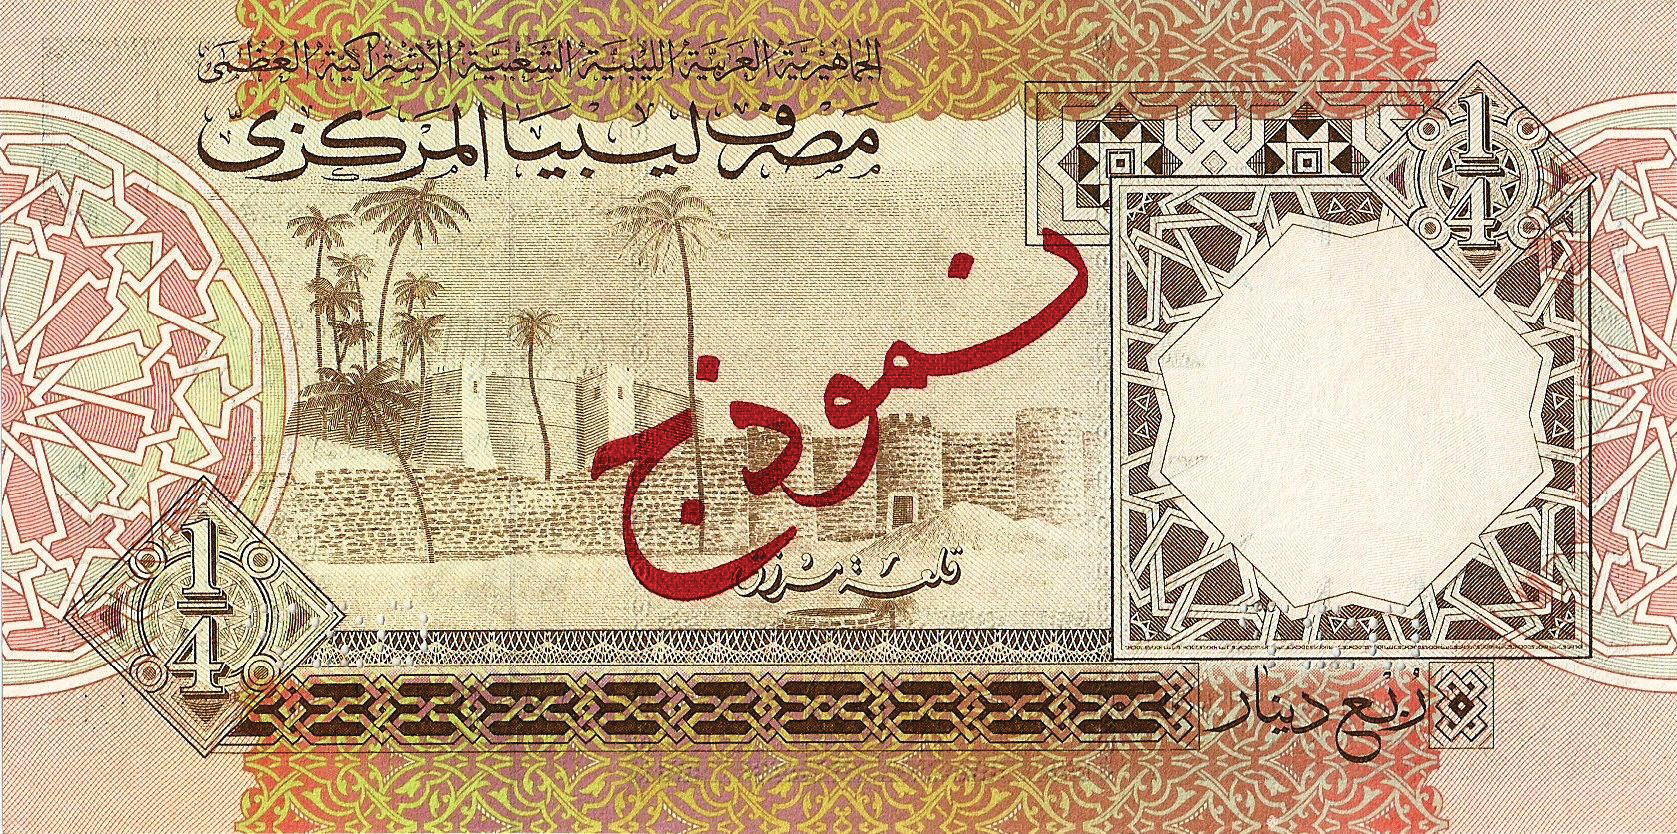 الجماهيرية العربية الليبية الشعبية الاشتراكية العظمى
مصرف ليبيا المركزي
1/4
نموذج
قلعة مرزق
1/4
ربع دينار